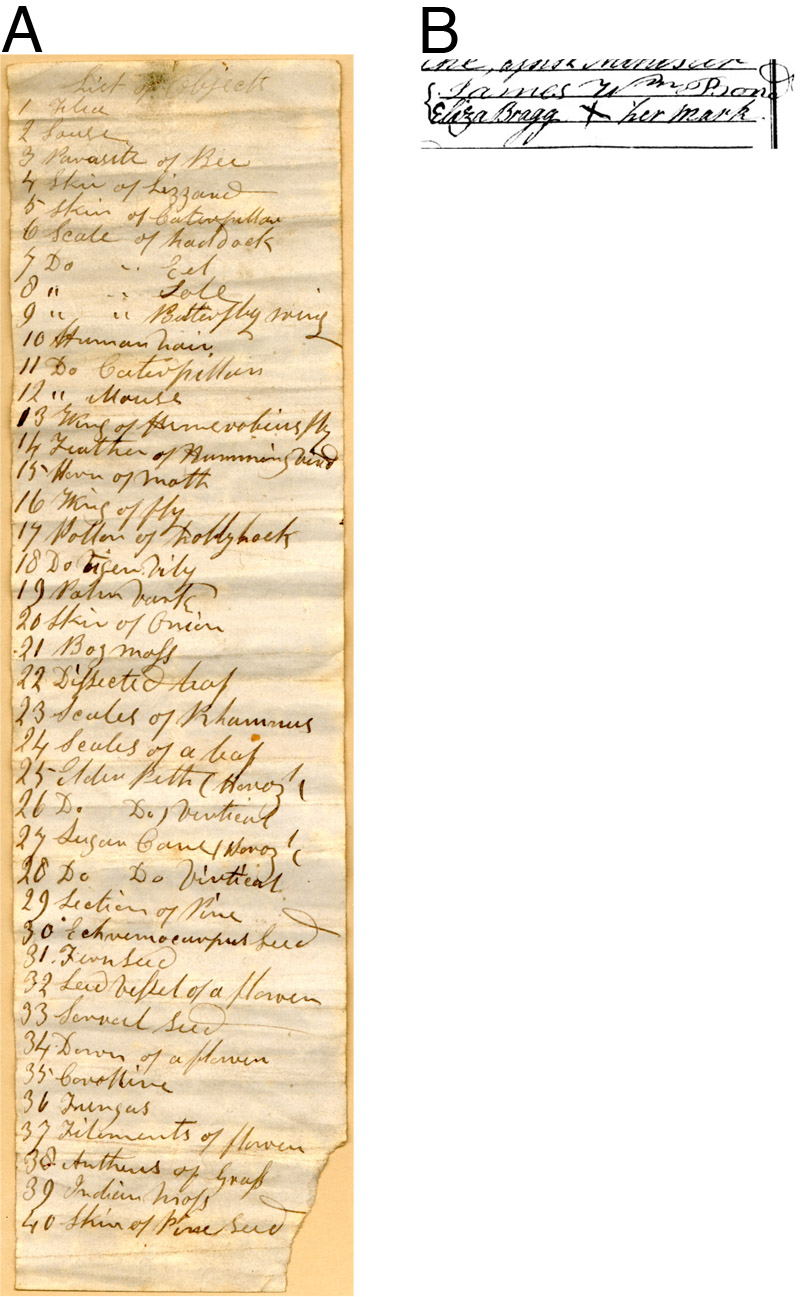 A
List of Objects
1 Flea
2 Louse
3 Parasite of Bee
4 Skin of Lizzard
5 Skin of Caterpillar
6 Scale of haddock
7 Do " Eel
8 " " Sole
9 " " Butterfly wing
10 Human hair
11 Do Caterpillar
12 " Mouse
13 Wing of Hemerobius fly
14 Feather of Humming bird
15 Horn of moth
16 Wing of fly
17 Pollen of hollyhock
18 Do Tiger lily
19 Palm bark
20 Skin of Onion
21 Bog moss
22 Dissected leaf
23 Scales of Rhamnus
24 Scales of a leaf
25 Elder Pith (Horoz'l
26 Do Do) Vertical
27 Sugar Cane (Horoz'l
28 Do Do Virtical
29 Section of Pine
30 Echremocarpus Seed
31. Fern Seed
32 Seed Vessel of a flower
33 Sorrel Seed
34 Down of a flower
35 Coralline
36 Fungus
37 Filements of flower
38 Anthers of Grass
39 Indian Moss
40 Skin of Pine Seed
B
James Wm
Eliza Bragg X her mark.